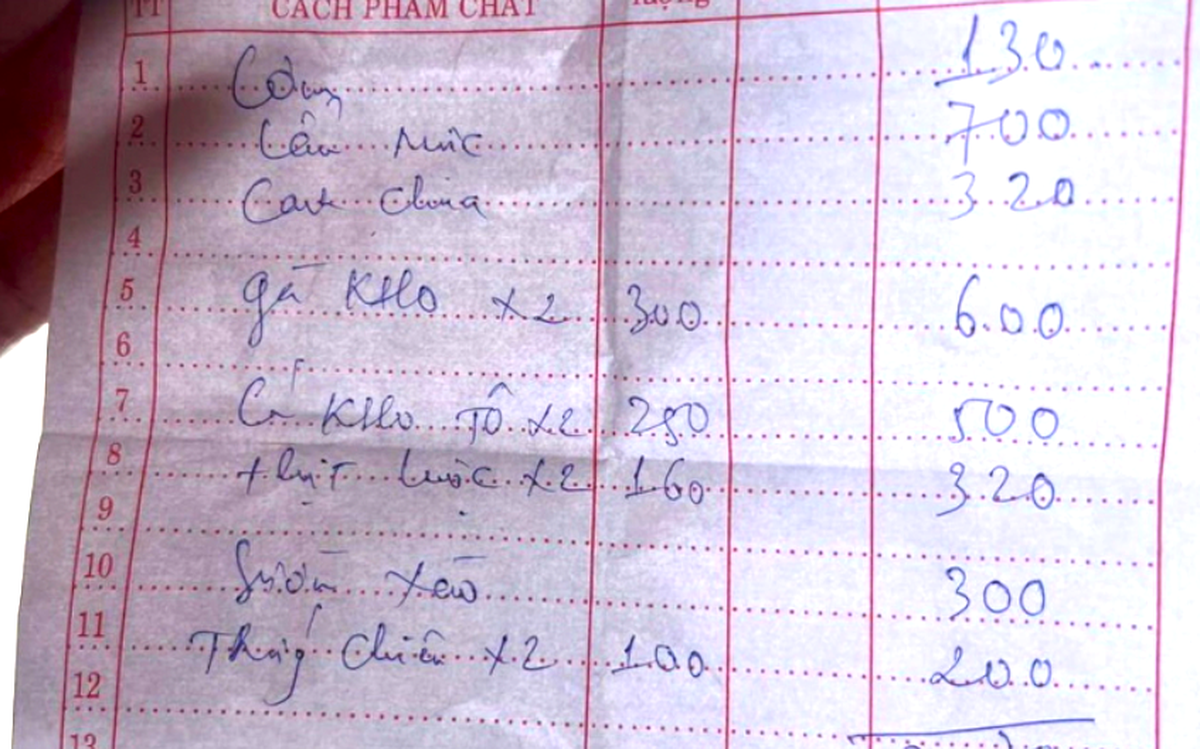 TT CÁCH PHẨM CHẤT lượng
1 Cơm 130
2 Lẩu mực 700
3 Canh chua 320
4
5 gà KHo x2 300 600
6
7 Cá KHo Tộ x2 250 500
8 thịt luộc x2 160 320
9
10 Sườn xào 300
11 Trứng chiên x2 100 200
12
13